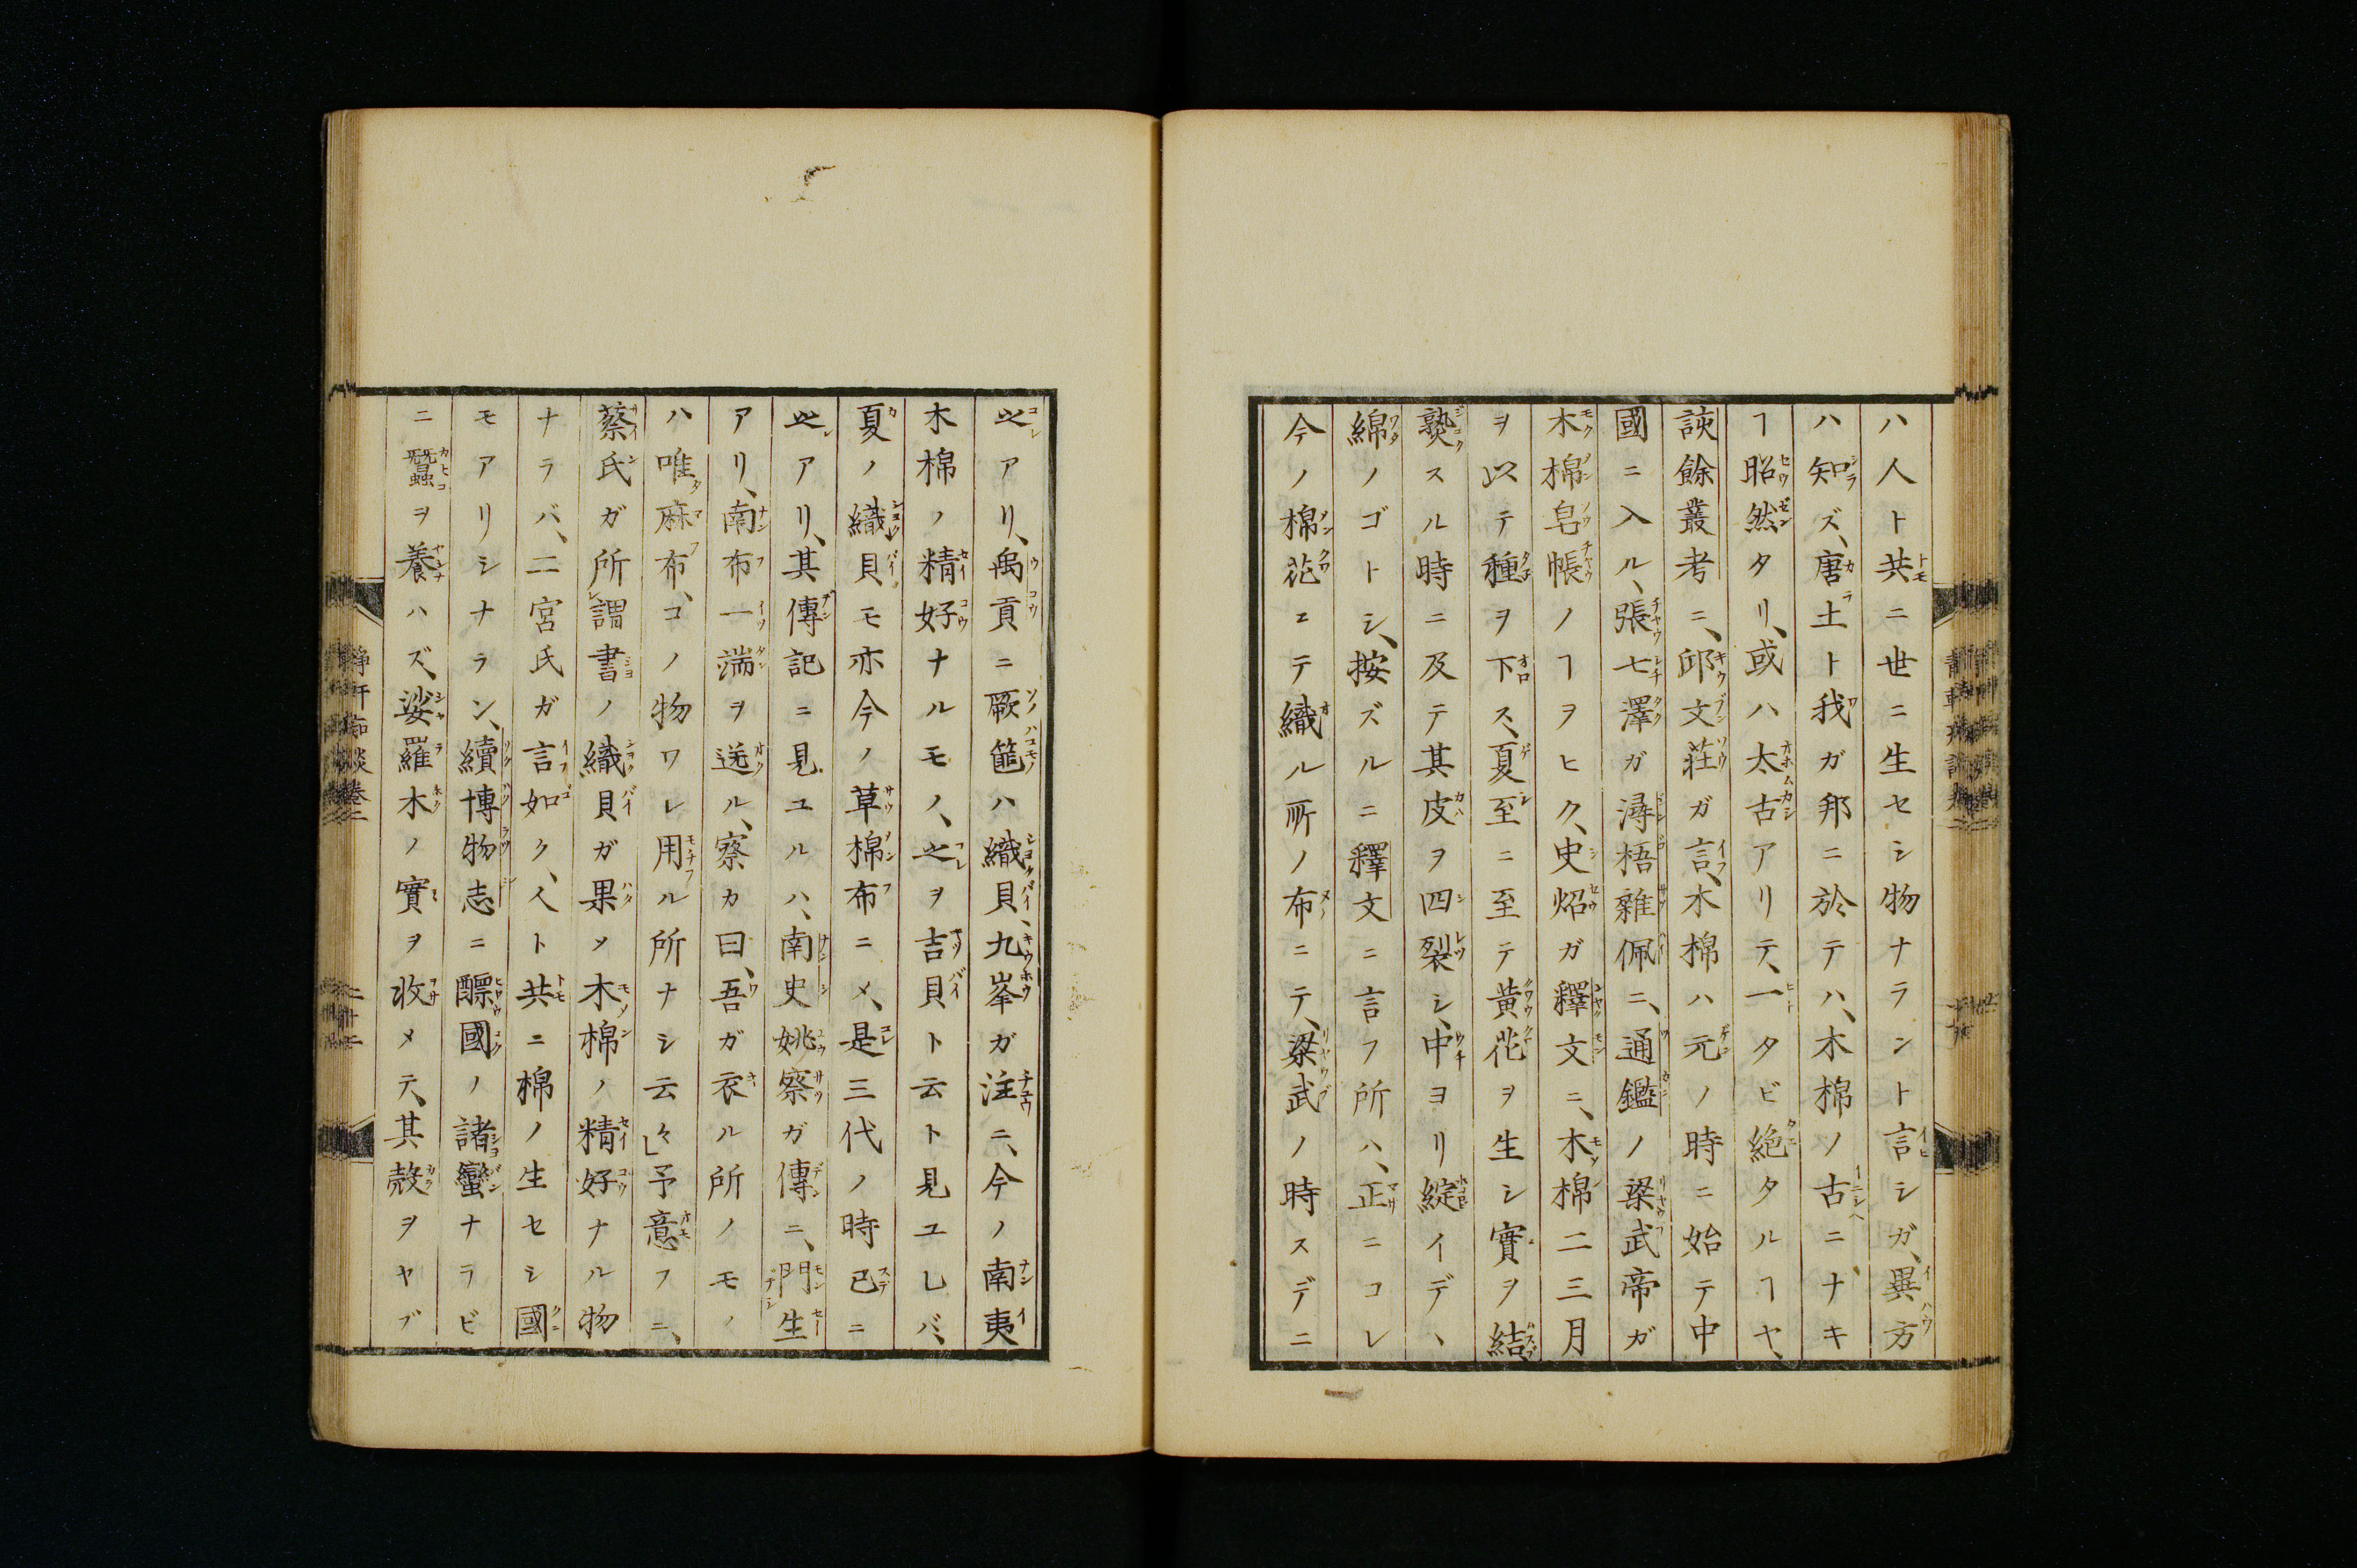 ハ人ト共ニ世ニ生セシ物ナラント言シガ、異方
ハ知ズ、唐土ト我ガ邦ニ於テハ、木棉ノ古ニナキ
ヿ昭然タリ、或ハ太古アリテ、一タビ絶タルヿヤ、
談餘叢考ニ、邱文荘ガ言、木棉ハ元ノ時ニ始テ中
國ニ入ル、張七澤ガ潯梧雜佩ニ、通鑑ノ梁武帝ガ
木棉皂帳ノヿヲヒク、史炤ガ釋文ニ、木棉二三月
ヲ以テ種ヲ下ス、夏至ニ至テ黄花ヲ生シ實ヲ結、
熟スル時ニ及テ其皮ヲ四裂シ、中ヨリ綻イデ、
綿ノゴトシ、按ズルニ釋文ニ言フ所ハ、正ニコレ
今ノ棉花ニテ織ル所ノ布ニテ、梁武ノ時スデニ
之アリ、禹貢ニ厥篚ハ織貝、九峯ガ注ニ、今ノ南夷
木棉ノ精好ナルモノ、之ヲ吉貝ト云ト見ユレバ、
夏ノ織貝モ亦今ノ草棉布ニメ、是三代ノ時已ニ
之アリ、其傳記ニ見ユルハ、南史姚察ガ傳ニ、門生
アリ、南布一端ヲ送ル、察カ曰、吾ガ衣ル所ノモノ
ハ唯麻布、コノ物ワレ用ル所ナシ云々」予意フニ、
蔡氏ガ所謂書ノ織貝ガ果メ木棉ノ精好ナル物
ナラバ、二宮氏ガ言如ク、人ト共ニ棉ノ生セシ國
モアリシナラン、續博物志ニ驃國ノ諸蠻ナラビ
ニ蠶ヲ養ハズ、娑羅木ノ實ヲ收メテ、其殼ヲヤブ